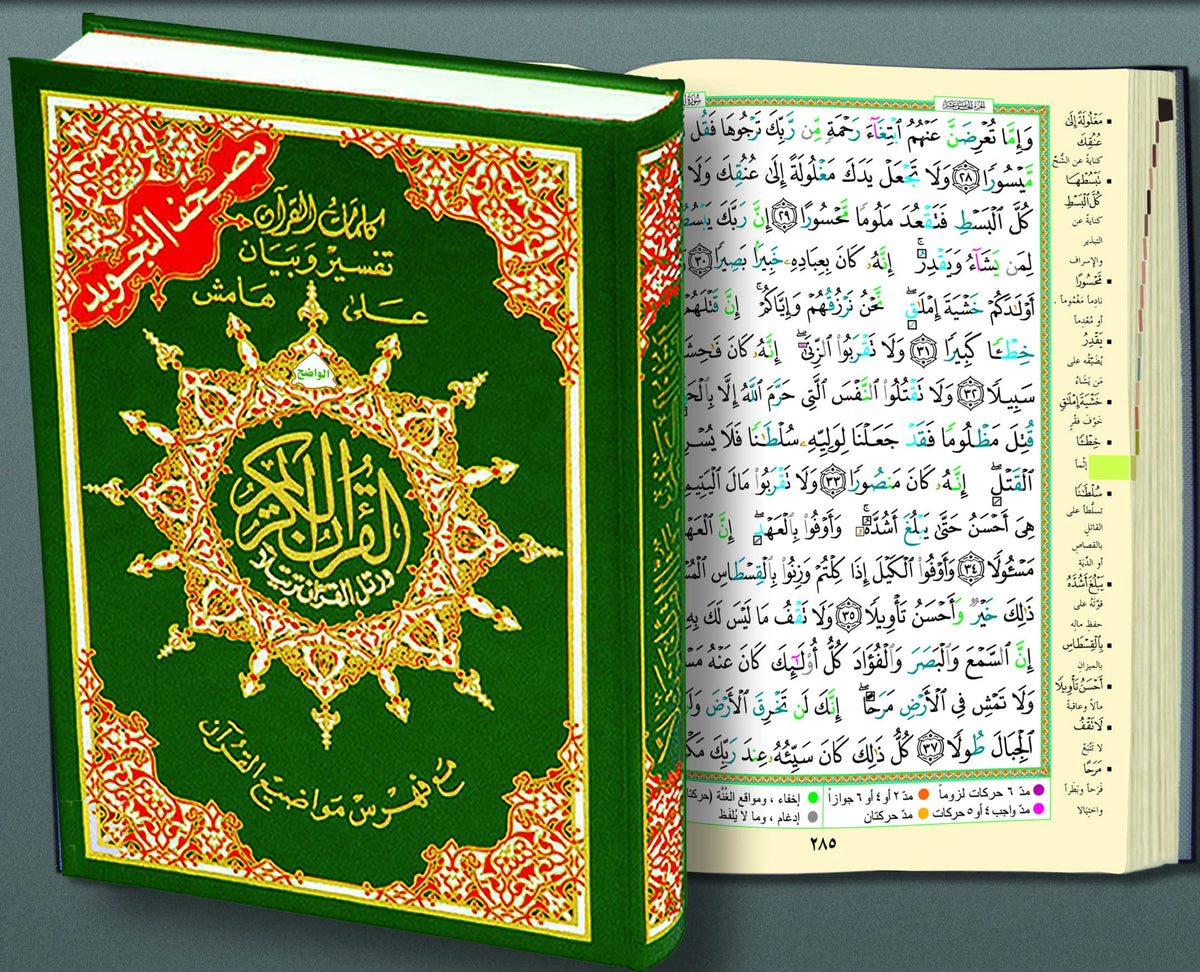 مصحف التجويد
كلمات القرآن
تفسير وبيان
على هامش
الواضح
القرآن الكريم
ورتل القرآن ترتيلا
مع فهرس مواضيع القرآن
الجزء الخامس عشر
سورة
وَإِمَّا تُعْرِضَنَّ عَنْهُمُ ٱبْتِغَآءَ رَحْمَةٍ مِّن رَّبِّكَ تَرْجُوهَا فَقُل
مَّيْسُورًا ٢٨ وَلَا تَجْعَلْ يَدَكَ مَغْلُولَةً إِلَىٰ عُنُقِكَ وَلَا
كُلَّ ٱلْبَسْطِ فَتَقْعُدَ مَلُومًا مَّحْسُورًا ٢٩ إِنَّ رَبَّكَ يَبْسُطُ
لِمَن يَشَآءُ وَيَقْدِرُ ۚ إِنَّهُۥ كَانَ بِعِبَادِهِۦ خَبِيرًۢا بَصِيرًا ٣٠
أَوْلَٰدَكُمْ خَشْيَةَ إِمْلَٰقٍ ۖ نَّحْنُ نَرْزُقُهُمْ وَإِيَّاكُمْ ۚ إِنَّ قَتْلَهُمْ
خِطْـًٔا كَبِيرًا ٣١ وَلَا تَقْرَبُوا۟ ٱلزِّنَىٰٓ ۖ إِنَّهُۥ كَانَ فَٰحِشَ
سَبِيلًا ٣٢ وَلَا تَقْتُلُوا۟ ٱلنَّفْسَ ٱلَّتِى حَرَّمَ ٱللَّهُ إِلَّا بِٱلْحَ
قُتِلَ مَظْلُومًا فَقَدْ جَعَلْنَا لِوَلِيِّهِۦ سُلْطَٰنًا فَلَا يُسْرِ
ٱلْقَتْلِ ۖ إِنَّهُۥ كَانَ مَنصُورًا ٣٣ وَلَا تَقْرَبُوا۟ مَالَ ٱلْيَتِيمِ
هِىَ أَحْسَنُ حَتَّىٰ يَبْلُغَ أَشُدَّهُۥ ۚ وَأَوْفُوا۟ بِٱلْعَهْدِ ۖ إِنَّ ٱلْعَهْ
مَسْـُٔولًا ٣٤ وَأَوْفُوا۟ ٱلْكَيْلَ إِذَا كِلْتُمْ وَزِنُوا۟ بِٱلْقِسْطَاسِ ٱلْمُ
ذَٰلِكَ خَيْرٌ وَأَحْسَنُ تَأْوِيلًا ٣٥ وَلَا تَقْفُ مَا لَيْسَ لَكَ بِهِ
إِنَّ ٱلسَّمْعَ وَٱلْبَصَرَ وَٱلْفُؤَادَ كُلُّ أُو۟لَٰٓئِكَ كَانَ عَنْهُ مَسْ
وَلَا تَمْشِ فِى ٱلْأَرْضِ مَرَحًا ۖ إِنَّكَ لَن تَخْرِقَ ٱلْأَرْضَ وَلَن
ٱلْجِبَالَ طُولًا ٣٧ كُلُّ ذَٰلِكَ كَانَ سَيِّئُهُۥ عِندَ رَبِّكَ مَكْ
مَغْلُولَةً إِلَىٰ
عُنُقِكَ
كناية عن الشُّحّ
تَبْسُطْهَا
كُلَّ ٱلْبَسْطِ
كناية عن
التبذير
والإسراف
مَّحْسُورًا
نادماً مغموماً .
أو مُعْدِماً
يَقْدِرُ
يُضَيِّقُه على
مَن يَشَاءُ
خَشْيَةَ إِمْلَٰقٍ
خَوْفَ فَقْرٍ
خِطْـًٔا
إثماً
سُلْطَٰنًا
تسلُّطاً على
القاتل
بالقصاص
أو الدِّيَة
يَبْلُغَ أَشُدَّهُ
قوَّتَهُ على
حفظِ مالِه
بِٱلْقِسْطَاسِ
بالميزان
أَحْسَنُ تَأْوِيلًا
مآلاً وعاقبةً
لَا تَقْفُ
لا تَتَّبِعْ
مَرَحًا
فَرَحاً وبَطَراً
واختِيَالا
مدّ ٦ حركات لزوماً مدّ ٢ أو ٤ أو ٦ جوازاً إخفاء ، ومواقع الغُنَّة (حركتا
مدّ واجب ٤ أو ٥ حركات مدّ حركتان إدغام ، وما لا يُلفَظ
٢٨٥